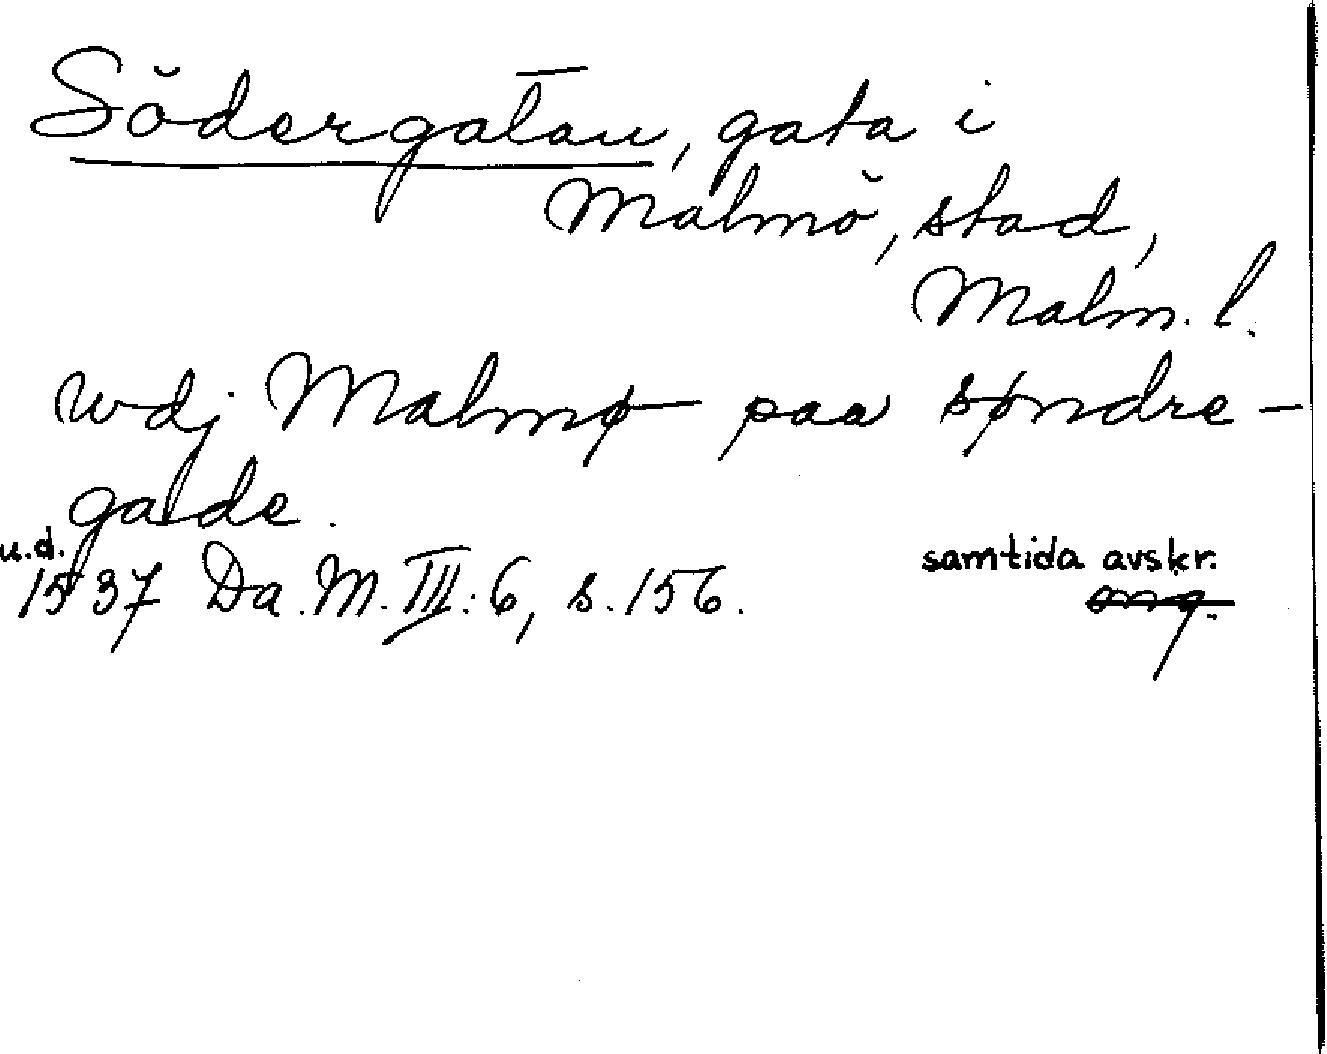 Södergatan, gata i
Malmö, stad,
Malm. l.
wdj Malmø paa søndre-
gade.
u.d.
1537 Da. M. III: 6, s. 156.
samtida avskr.